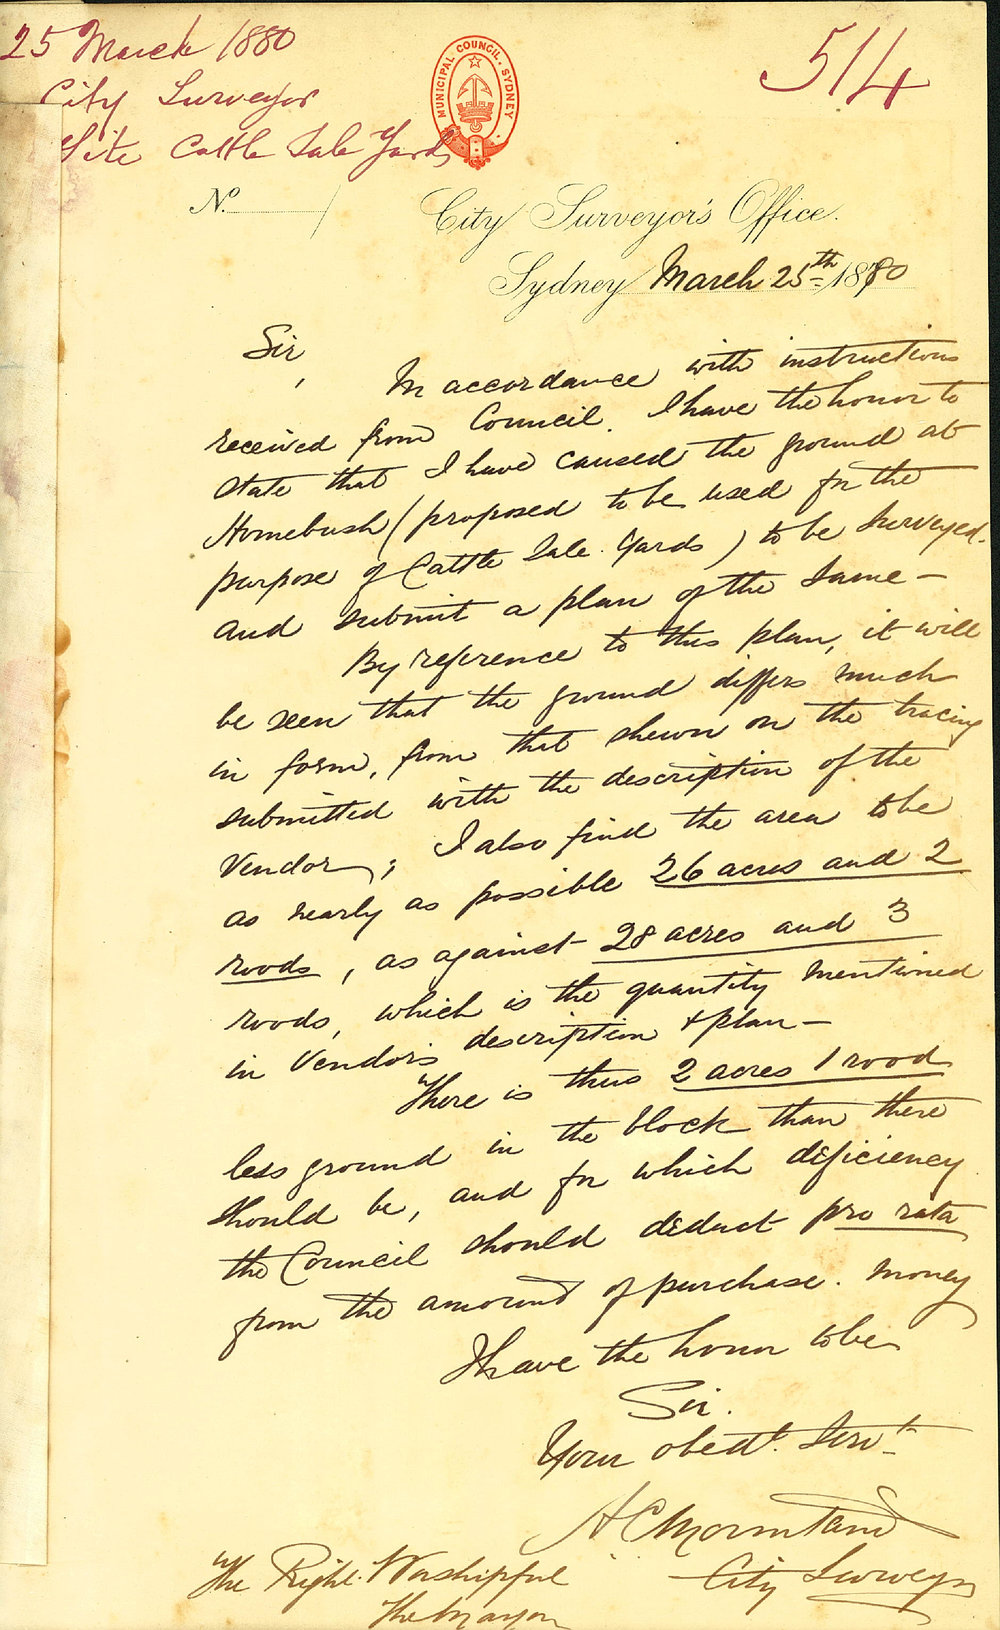 25 March 1880
514
City Surveyor
Site Cattle Sale Yards
MUNICIPAL COUNCIL. SYDNEY
No.
City Surveyor's Office.
Sydney March 25th 1880
Sir,
In accordance with instructions
received from Council. I have the honor to
state that I have caused the ground at
Homebush (proposed to be used for the
purpose of Cattle Sale Yards) to be surveyed.
and submit a plan of the same —
By reference to this plan, it will
be seen that the ground differs much
in form, from that shewn on the tracing
submitted with the description of the
Vendor; I also find the area to be
as nearly as possible 26 acres and 2
roods, as against 28 acres and 3
roods, which is the quantity mentioned
in Vendor's description & plan —
There is thus 2 acres 1 rood
less ground in the block than there
should be, and for which deficiency
the Council should deduct pro rata
from the amount of purchase. money
I have the honor to be
Sir.
Your obedt. Servt.
City Surveyor
The Right Worshipful
The Mayor